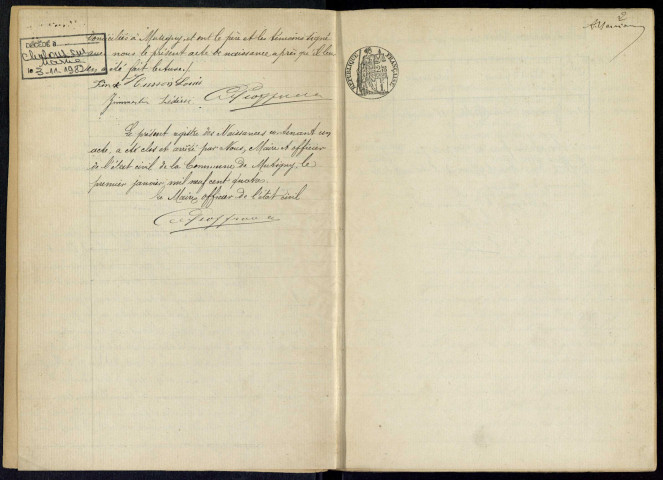 domiciliés à Mutigny, et ont le père et les témoins signé
nous le présent acte de naissance après qu'il leur
en a été fait lecture.
DÉCÉDÉ à
Châlons sur
Marne
le 3-11-1982
Husson Louis
Le présent registre des Naissances contenant un
acte, a été clos et arrêté par Nous, Maire et officier
de l'état civil de la Commune de Mutigny, le
premier janvier, mil neuf cent quatre.
Le Maire, officier de l'état civil
2
RÉPUBLIQUE FRANÇAISE